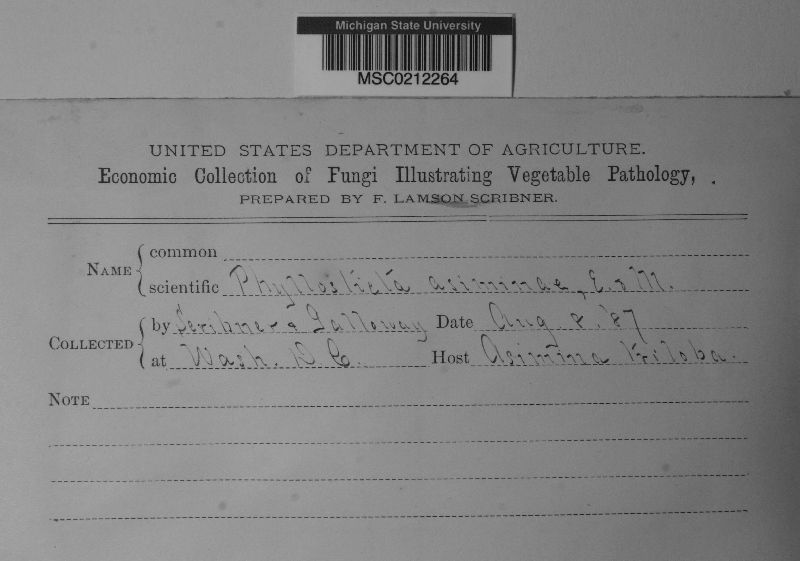 Michigan State University
MSC0212264
UNITED STATES DEPARTMENT OF AGRICULTURE.
Economic Collection of Fungi Illustrating Vegetable Pathology,
PREPARED BY F. LAMSON SCRIBNER.
NAME { common
scientific Phyllosticta asiminae, E. & M.
COLLECTED { by Scribner & Galloway Date Aug. 8. '87
at Wash. D. C. Host Asimina triloba.
NOTE